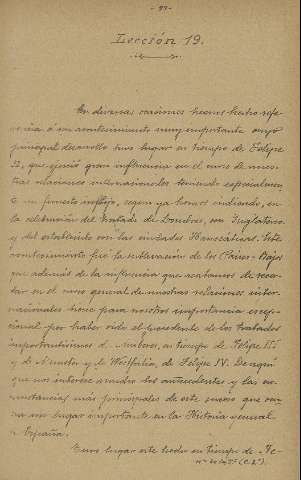 Lección 19.
En diversas ocasiones hemos hecho refe-
rencia á un acontecimiento muy importante cuyo
principal desarrollo tuvo lugar en tiempo de Felipe
II, que ejerció gran influencia en el curso de nues-
tras relaciones internacionales teniendo especialmen-
te un funesto influjo, segun ya hemos indicado, en
la celebración del tratado de Londres, con Inglaterra
y del establecido con las ciudades Hanseáticas. Este
acontecimiento fué la sublevación de los Países-Bajos
que además de la influencia que acabamos de recor-
dar en el curso general de nuestras relaciones inter-
nacionales tiene para nosotros importancia excep-
cional por haber sido el precedente de los tratados
importantísimos de Munster, en tiempo de Felipe III
y de Munster y de Westfalia, de Felipe IV. De aquí
que nos interese estudiar los antecedentes y las cir-
cunstancias más principales de este suceso que ocu-
pa un lugar importante en la Historia general
de España.
Tuvo lugar este hecho en tiempo de Fe-